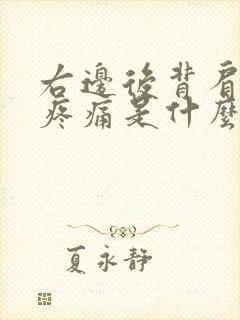 右邊後背肩
疼痛是什麼
夏永靜